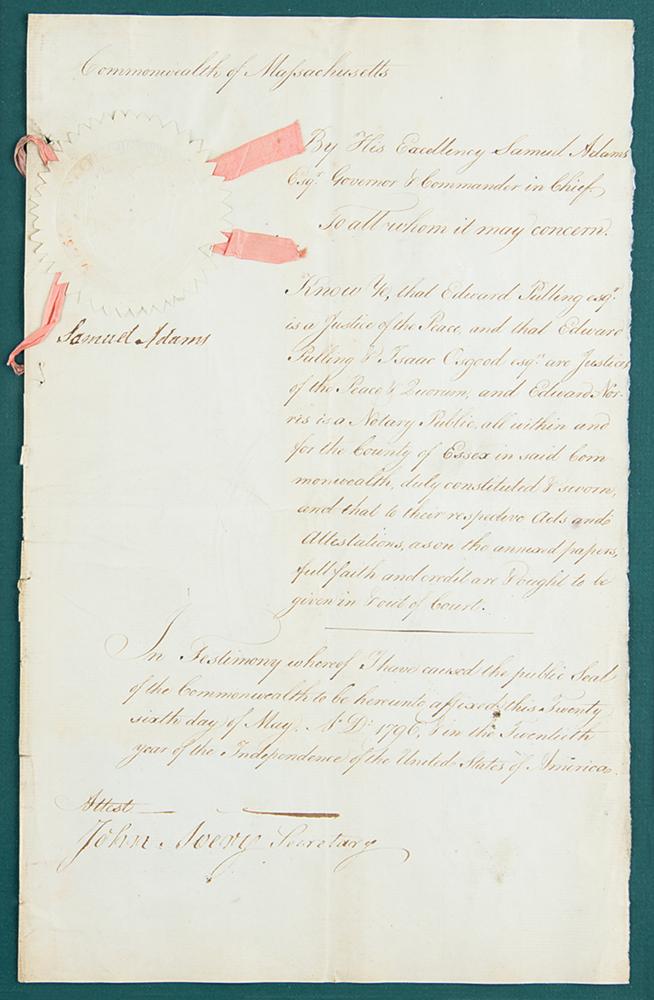 Commonwealth of Massachusetts
By His Excellency Samuel Adams
Esqr. Governor & Commander in Chief
To all whom it may concern.
Know Ye, that Edward Pulling esqr.
is a Justice of the Peace, and that Edward
Pulling & Isaac Osgood esqrs. are Justices
of the Peace & Quorum, and Edward Nor-
ris is a Notary Public, all within and
for the County of Essex in said Com-
monwealth, duly constituted & sworn,
and that to their respective Acts and
Attestations, as on the annexed papers,
full faith and credit are & ought to be
given in & out of Court.
Samuel Adams
In Testimony whereof I have caused the public Seal
of the Commonwealth to be hereunto affixed this Twenty
sixth day of May, A. D. 1796, & in the Twentieth
year of the Independence of the United States of America.
Attest
John Avery Secretary